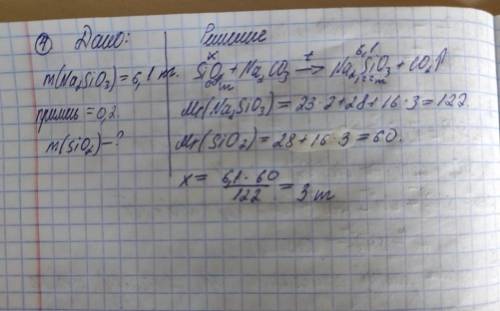 ④ Дано:
Решение
m(Na₂SiO₃)=6,1 т.
примесь=0,2
m(SiO₂)-?
x 6,1
SiO₂+Na₂CO₃ →t Na₂SiO₃+CO₂↑
Mr(Na₂SiO₃)=23·2+28+16·3=122
Mr(SiO₂)=28+16·3=60.
x= 6,1·60/122 = 3 т